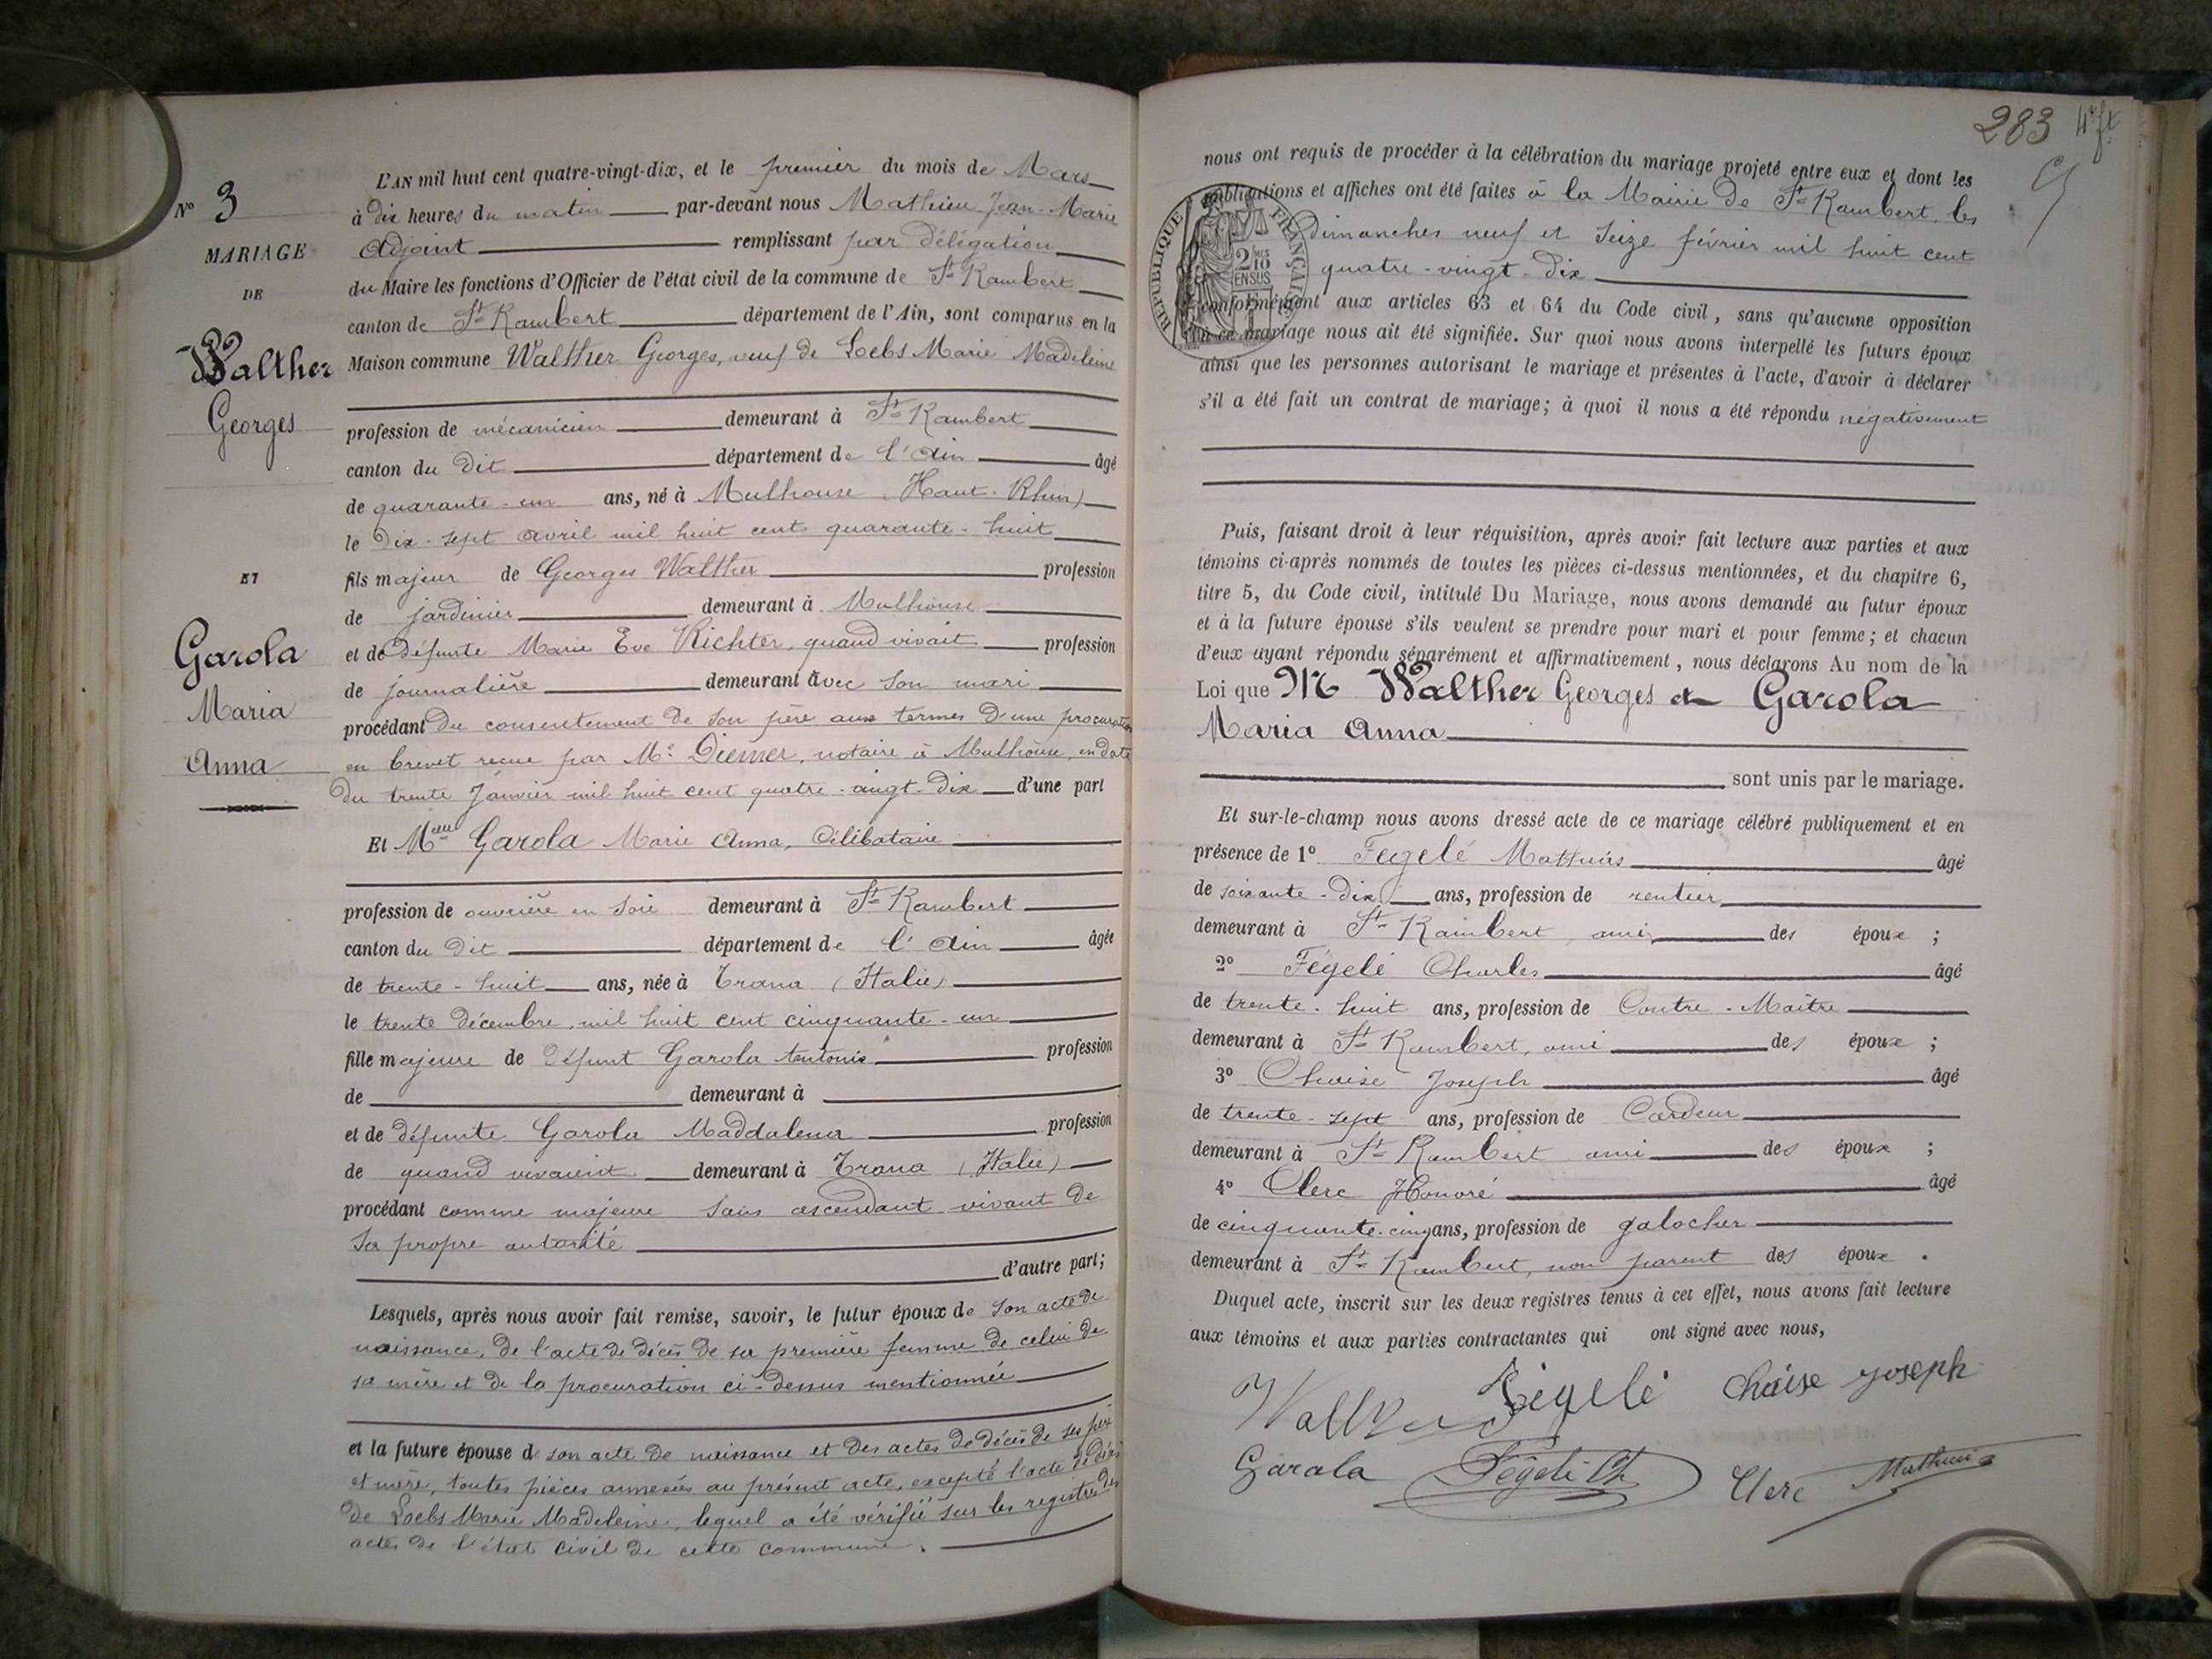 N° 3
MARIAGE
DE
Walther
Georges
ET
Garola
Maria
Anna
L'AN mil huit cent quatre-vingt-dix, et le premier du mois de Mars
à dix heures du matin par-devant nous Mathieu Jean-Marie
Adjoint remplissant par délégation
du Maire les fonctions d'Officier de l'état civil de la commune de St Rambert
canton de St Rambert département de l'Ain, sont comparus en la
Maison commune Walther Georges, veuf de Loebs Marie Madeleine
profession de mécanicien demeurant à St Rambert
canton du dit département de l'Ain âgé
de quarante-un ans, né à Mulhouse (Haut-Rhin)
le dix-sept avril mil huit cent quarante-huit
fils majeur de Georges Walther profession
de jardinier demeurant à Mulhouse
et de défunte Marie Eve Richter, quand vivait profession
de journalière demeurant avec son mari
procédant du consentement de son père aux termes d'une procuration
en brevet reçue par Me Diemer, notaire à Mulhouse, en date
du trente Janvier mil huit cent quatre-vingt-dix d'une part
Et Melle Garola Marie Anna, Célibataire
profession de ouvrière en soie demeurant à St Rambert
canton du dit département de l'Ain âgée
de trente-huit ans, née à Trana (Italie)
le trente décembre, mil huit cent cinquante-un
fille majeure de défunt Garola profession
de demeurant à
et de défunte Garola Maddalena profession
de quand vivaient demeurant à Trana (Italie)
procédant comme majeure sans ascendant vivant de
sa propre autorité
d'autre part;
Lesquels, après nous avoir fait remise, savoir, le futur époux de son acte de
naissance, de l'acte de décès de sa première femme de celui de
sa mère et de la procuration ci-dessus mentionnée
et la future épouse de son acte de naissance et des actes de décès de ses père
et mère, toutes pièces annexées au présent acte, excepté l'acte de décès
de Loebs Marie Madeleine, lequel a été vérifié sur les registres des
actes de l'état civil de cette commune.
283 4e ft
nous ont requis de procéder à la célébration du mariage projeté entre eux et dont les
publications et affiches ont été faites à la Mairie de St Rambert les
dimanches neuf et seize février mil huit cent
quatre-vingt-dix
RÉPUBLIQUE FRANÇAISE
2/10 EN SUS
conformément aux articles 63 et 64 du Code civil, sans qu'aucune opposition
à ce mariage nous ait été signifiée. Sur quoi nous avons interpellé les futurs époux
ainsi que les personnes autorisant le mariage et présentes à l'acte, d'avoir à déclarer
s'il a été fait un contrat de mariage; à quoi il nous a été répondu négativement
Puis, faisant droit à leur réquisition, après avoir fait lecture aux parties et aux
témoins ci-après nommés de toutes les pièces ci-dessus mentionnées, et du chapitre 6,
titre 5, du Code civil, intitulé Du Mariage, nous avons demandé au futur époux
et à la future épouse s'ils veulent se prendre pour mari et pour femme; et chacun
d'eux ayant répondu séparément et affirmativement, nous déclarons Au nom de la
Loi que Mr Walther Georges et Garola
Maria Anna
sont unis par le mariage.
Et sur-le-champ nous avons dressé acte de ce mariage célébré publiquement et en
présence de 1° Fégelé Mathias âgé
de soixante-dix ans, profession de rentier
demeurant à St Rambert, ami des époux ;
2° Fégelé Charles âgé
de trente-huit ans, profession de Contre-Maître
demeurant à St Rambert, ami des époux ;
3° Chaise Joseph âgé
de trente-sept ans, profession de Cardeur
demeurant à St Rambert ami des époux ;
4° Clerc Honoré âgé
de cinquante-cinq ans, profession de galocher
demeurant à St Rambert, non parent des époux .
Duquel acte, inscrit sur les deux registres tenus à cet effet, nous avons fait lecture
aux témoins et aux parties contractantes qui ont signé avec nous,
Walther Fégelé Chaise Joseph
Garola Fégelé Ch Clerc Mathieu